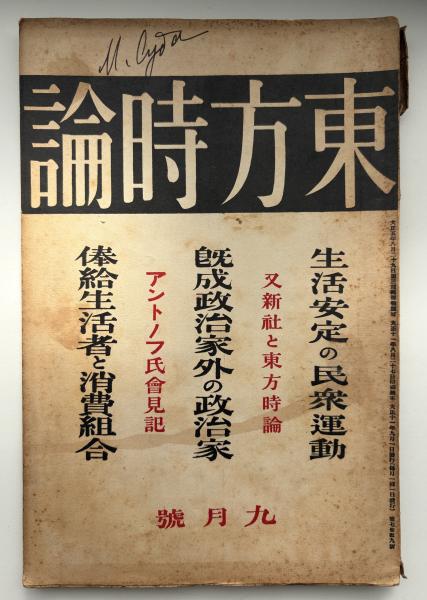 M. Cyda
東方時論
生活安定の民衆運動
又新社と東方時論
既成政治家外の政治家
アントノフ氏會見記
俸給生活者と消費組合
九月號